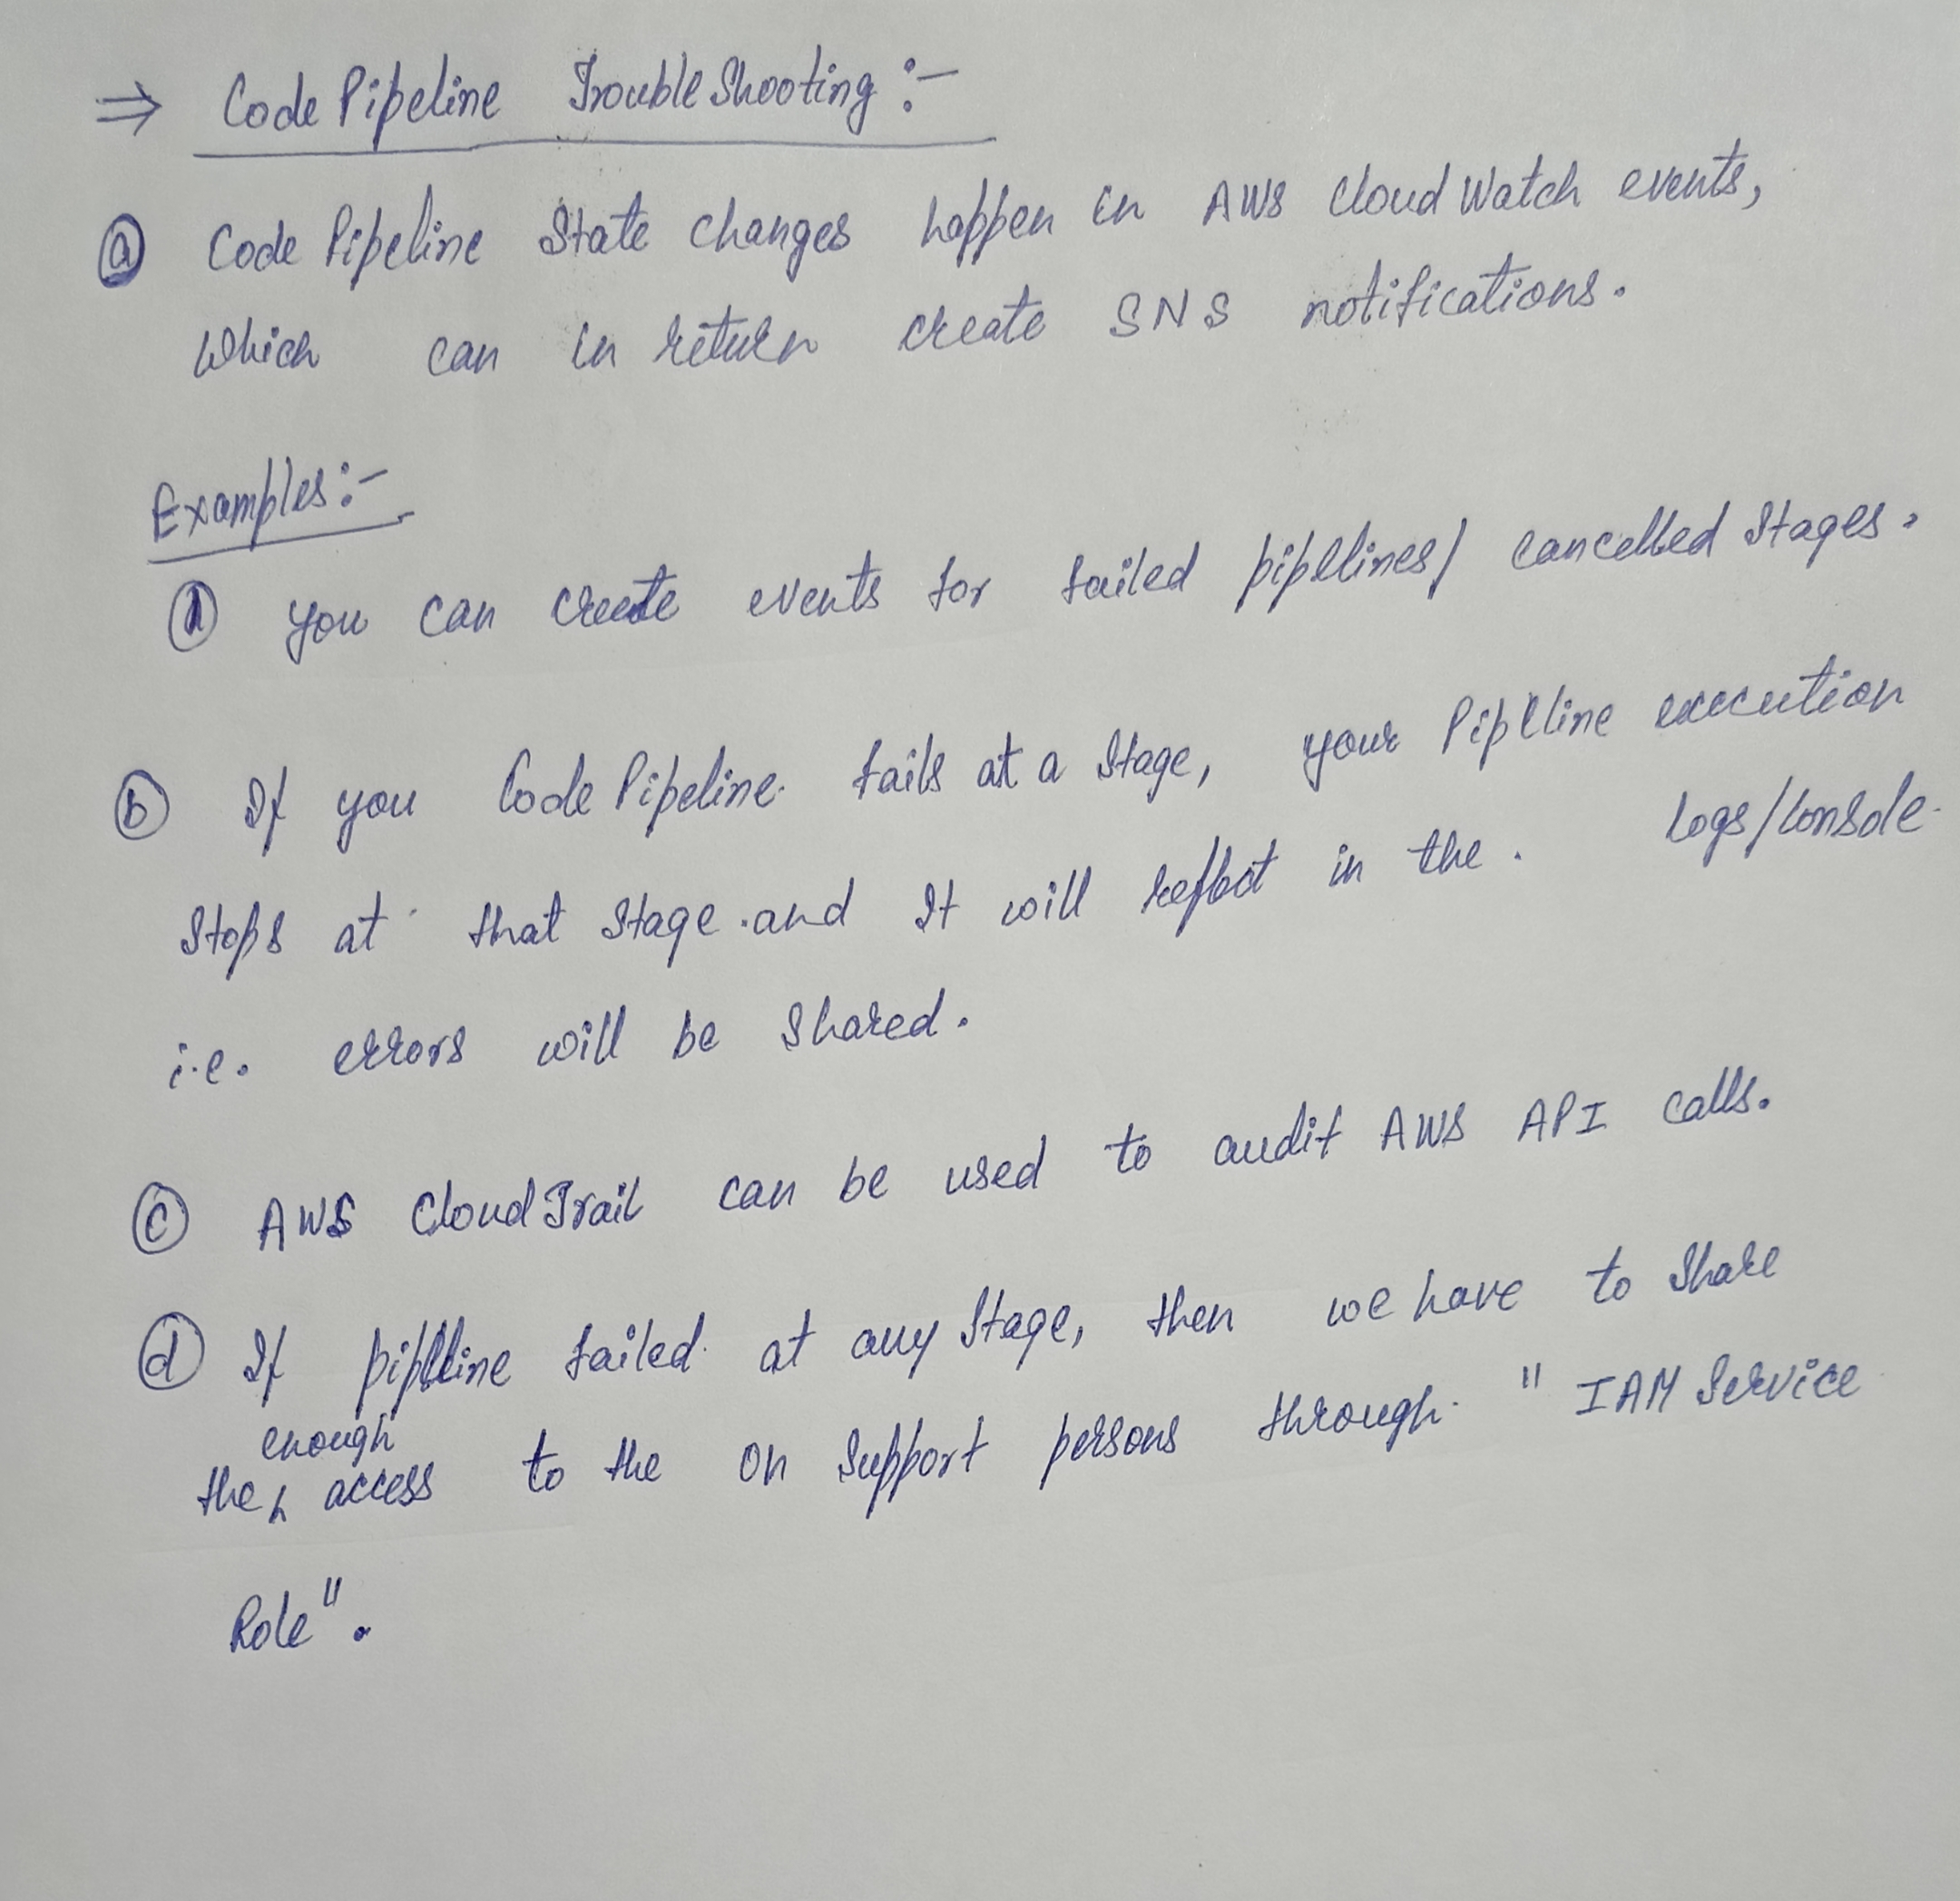 ⇒ Code Pipeline TroubleShooting :-
ⓐ Code Pipeline State changes happen in AWS Cloud Watch events,
Which can in return create SNS notifications.
Examples:-
① You can create events for failed pipelines/ cancelled Stages.
ⓑ If you Code Pipeline. fails at a Stage, your Pipeline execution
Stops at that Stage. and It will reflect in the. Logs/Console.
i.e. errors will be Shared.
ⓒ AWS CloudTrail can be used to audit AWS API calls.
ⓓ If pipeline failed. at any Stage, then we have to Share
enough
the access to the On Support persons through. " IAM Service
Role".